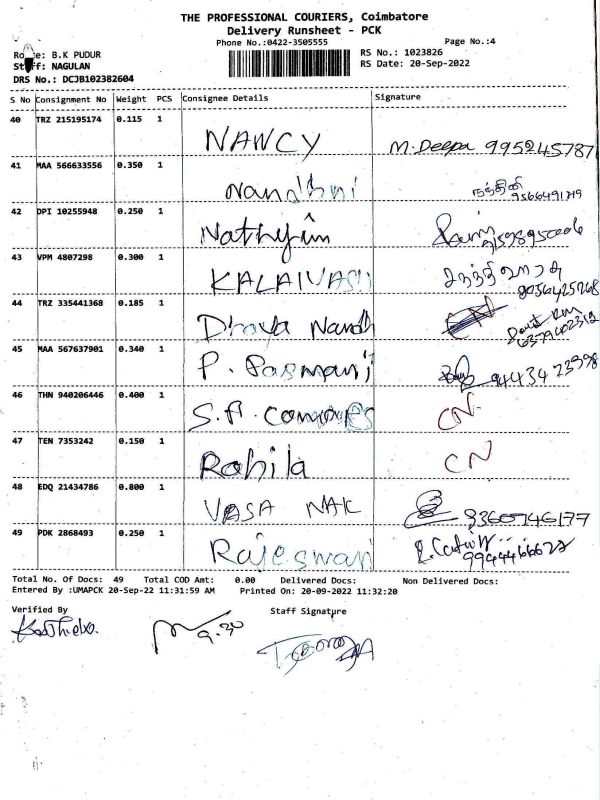 THE PROFESSIONAL COURIERS, Coimbatore
Delivery Runsheet - PCK
Phone No.:0422-3505555 Page No.:4
RS No.: 1023826
RS Date: 20-Sep-2022
B.K PUDUR
NAGULAN
DRS No.: DCJB102382604
S No Consignment No Weight PCS Consignee Details Signature
40 TRZ 215195174 0.115 1 NANCY M. Deepa 995245787
41 MAA 566633556 0.350 1 Nandhni நந்தினி
42 DPI 10255948 0.250 1
43 VPM 4807298 0.300 1 KALAIVASI
44 TRZ 335441368 0.185 1 Dhaya Nandh CN
45 MAA 567637901 0.340 1 P. 9443423998
46 THN 940206446 0.400 1 S.P. CN
47 TEN 7353242 0.150 1 Rohila CN
48 EDQ 21434786 0.800 1 VASA NAK 9360746177
49 PDK 2868493 0.250 1 Rajeswari 9944466622
Total No. Of Docs: 49 Total COD Amt: 0.00 Delivered Docs: Non Delivered Docs:
Entered By :UMAPCK 20-Sep-22 11:31:59 AM Printed On: 20-09-2022 11:32:20
Verified By Staff Signature
9.30